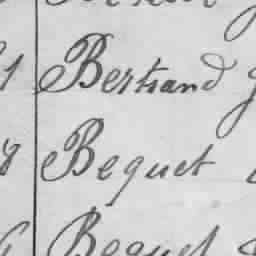 1 Bertrand
8 Bequet
Bequet